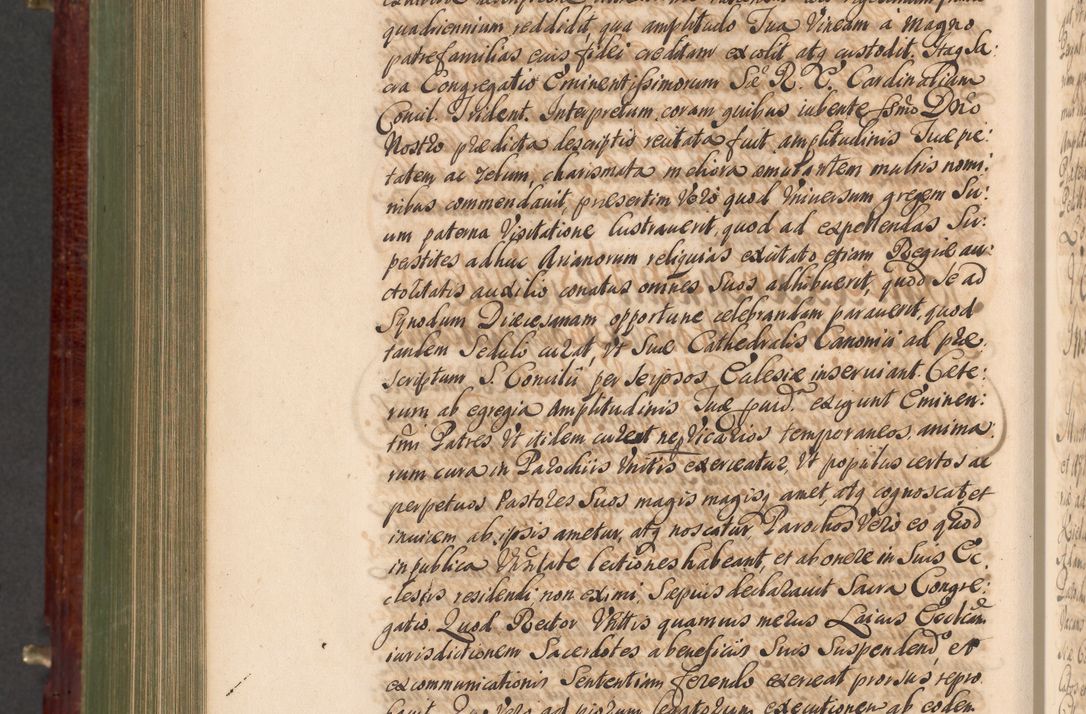 quadriennium reddidit, qua amplitudo Tua Vineam a Magno
patrefamilias eius fidei creditam excolit atq custodit. Itaq Sa:
cra Congregatio Eminentissimorum Sæ R. E. Cardinalium
Concil. Trident. Interpretum, coram quibus iubente ssmo Dño
Nostro prædicta descriptio recitata fuit amplitudinis Tuæ pie:
tatem ac zelum, charismata meliora æmulantem multis nomi:
nibus commendauit, præsertim Vero quod Vniversum gregem Su:
um paterna Visitatione lustrauerit, quod ad expellendas Su:
perstites adhuc Arianorum reliquias excitato etiam Regiæ au:
ctoritatis auxilio conatus omnes Suos adhibuerit, quod Se ad
Synodum Diæcesanam opportune celebrandam parauerit, quod
tandem Sedulo curat, Vt Suæ Cathedralis Canonici ad præ
scriptum S. Concilii per Seipsos Ecclesiæ inserviant. Cæte:
rum ab egregia Amplitudinis Tuæ exigunt Eminen:
tmi Patres Vt itidem curet ne p Vicarios temporaneos, anima:
rum cura in Parochiis Vnitis exerceatur, Vt populus certos ac
perpetuos Pastores Suos magis magisq amet, atq cognoscat et
inuicem ab ipsis ametur, atq noscatur, Parochos Vero eo quod
in publica Vnitate lectiones habeant, et ab onere in Suis Ec:
clesiis residendi non eximi, Sæpius declarauit Sacra Congre:
gatio. Quod Rector Vnitis quamuis merus Laicus Ecclicam
iurisdictionem Sacerdotes a beneficiis Suis Suspendend, et
excommunicationis Sententiam ferendo exerceat prorsus repro:
bauit. Quo Vero ad piorum legatorum executionem ab eodem